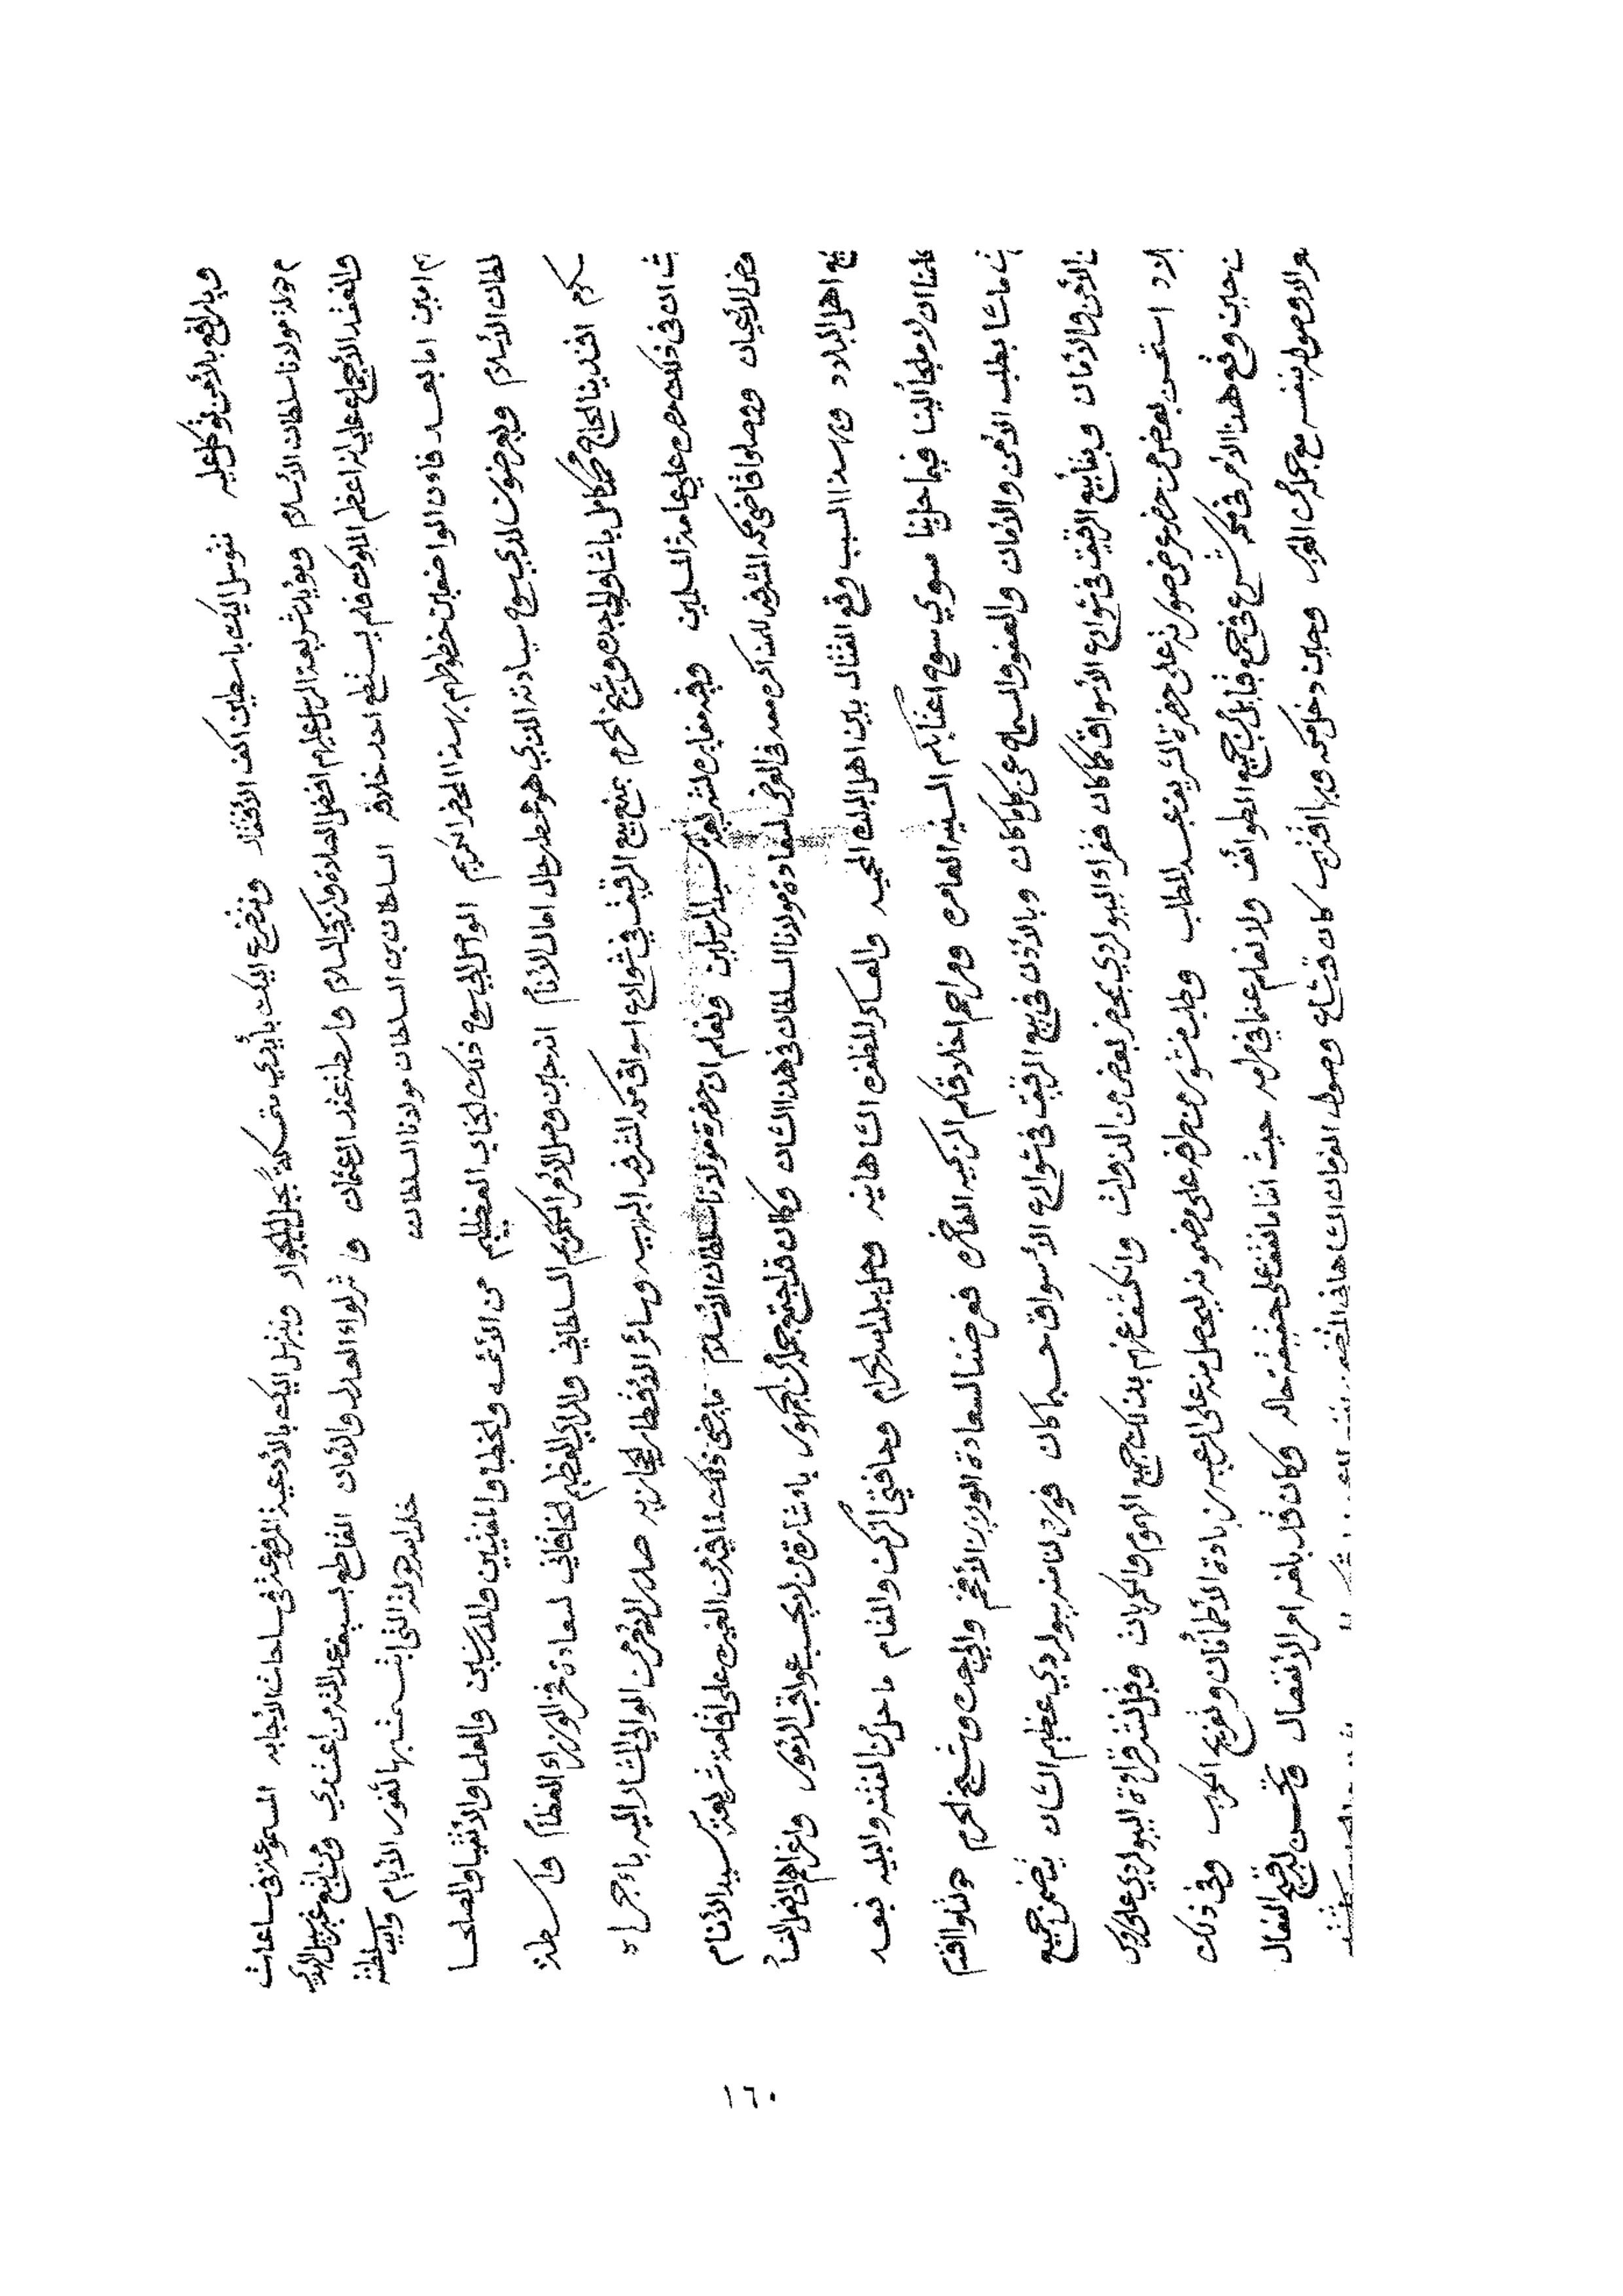 توكل عليه نتوسل اليك باسطين اكف الافتقار ونتضرع اليك بأيدي متمسكة بحبل الجوار ونبتهل اليك بالأدعية المرفوعة في ساحات الاجابه المسموعة في ساعات
مولانا سلطان الأسلام ويؤيد شريعة الرسل عليهم افضل الصلاة وازكى السلام واسطة عقد العثمان ناشر لواء العدل والأمان القاطع بسيف عدله من اعتدى ومن اتبع غير سبيل الهدى
والعقد الأجماع على انه اعظم الملوك فلم يستطع احد خلافه السلطان بن السلطان مولانا السلطان خلد الله دولته التي ابتسمت بها ثغور الأيام
امين اما بعد فان الواضعين خطوطهم بهذا المحضر الكريم الواصل الي سوح ذلك الجناب العظيم من الأئمه والخطبا والمفتيين والمدرسين والعلما والأتقيا والصلحا
الأسلام ويعرضون لدي سوح سيادته الذي هو محط رحال امال الأنام انه حين وصل الأمر الكريم السلطاني والرأي العظيم الخاقاني لسعادة فخر الوزراء العظام واسطة
افندينا الحاج محمد كامل باشا والي جده وشيخ الحرم بمنع بيع الرقيق في شوارع اسواق مكه المشرفه البهيه وسائر الأقطار الحجازيه صدر الأمر من الوالي المشار اليه باجراه
ان في ذلك مضره علي عامة المسلمين وفيه مغايره لشريعة سيد المرسلين ونعلم ان حضرة مولانا سلطان الأسلام ما يرضى ذلك لما فيه من الغيره على اقامة شريعة سيد الأنام
الأعيان ووصلوا قاضي مكه المشرفه للمذاكره معه في العرض لسعادة مولانا السلطان في هذا الشان وكان قد اجتمع جملة من الجمهور باشارة من لم يحسب عواقب الأمور
اهل البلاد وبهذا السبب وقع القتال بين اهل البلد الحميه والعساكر المظفره الشاهانيه وحل ببلد الله الحرام وحافتي الركن والمقام ما حل من الفتنه والبليه فبعد
ان لا ملجأ الينا فيما حل بنا سوي سوح اعتابكم السنيه العامره ومراحم اخلاقكم الزكيه الفاخره فعرضنا لسعادة الوزير الأفخم والي جده وشيخ الحرم
بطلب الأمن والامان والعفو والسماح عن كل ما كان وبالأذن في بيع الرقيق في شوارع الأسواق حسبما كان فورد لنا منه بيولردي عظيم الشان تضمن جميع
الأمن والأمان وبيع الرقيق في شوارع الأسواق كما كان فقراء البيولردي بمحضر بعض من الذوات وانكشف عنهم بذلك جميع الهموم والكربات وقبل نشر قراءة البيولردي على
استحسن بعض من حضر عرض صورته على حضرة الشريف عبد المطلب وطلب منشور من طرفه على مضمونه ليحصل منه على الرعيه زيادة الأطمأنان وتفريج الكرب وفي ذلك
حين وقع هذا الأمر في مكه شرع في جمع قبائل من جميع الطوائف ولا نعلم عنما في مرامه حيث اننا ما نقف على حقيقة حاله وكان قد بلغه امر الأنفصال وتحسن لديه قبيح الفعال
وصوله بنفسه مع جملة من العربي وحين دخل مكه وبها اقترب كان قد شاع وصول الفرمان الشاهاني
١٦٠